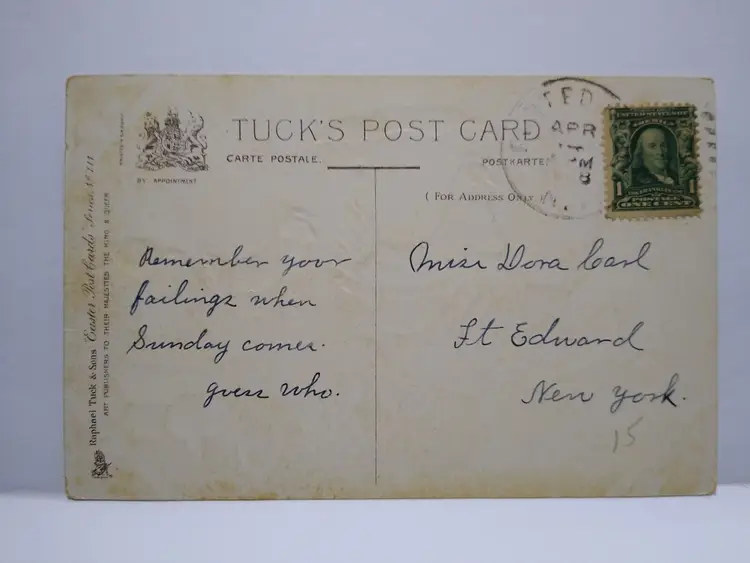 TUCK'S POST CARD
CARTE POSTALE.
POSTKARTE
BY APPOINTMENT
( FOR ADDRESS ONLY )
APR
UNITED STATES OF AMERICA
1 FRANKLIN 1
POSTAGE
ONE CENT
Remember your
failings when
Sunday comes.
guess who.
Miss Dora Carl
Ft Edward
New York.
15
Raphael Tuck & Sons Easter Post Cards Series
ART PUBLISHERS TO THEIR MAJESTIES THE KING & QUEEN